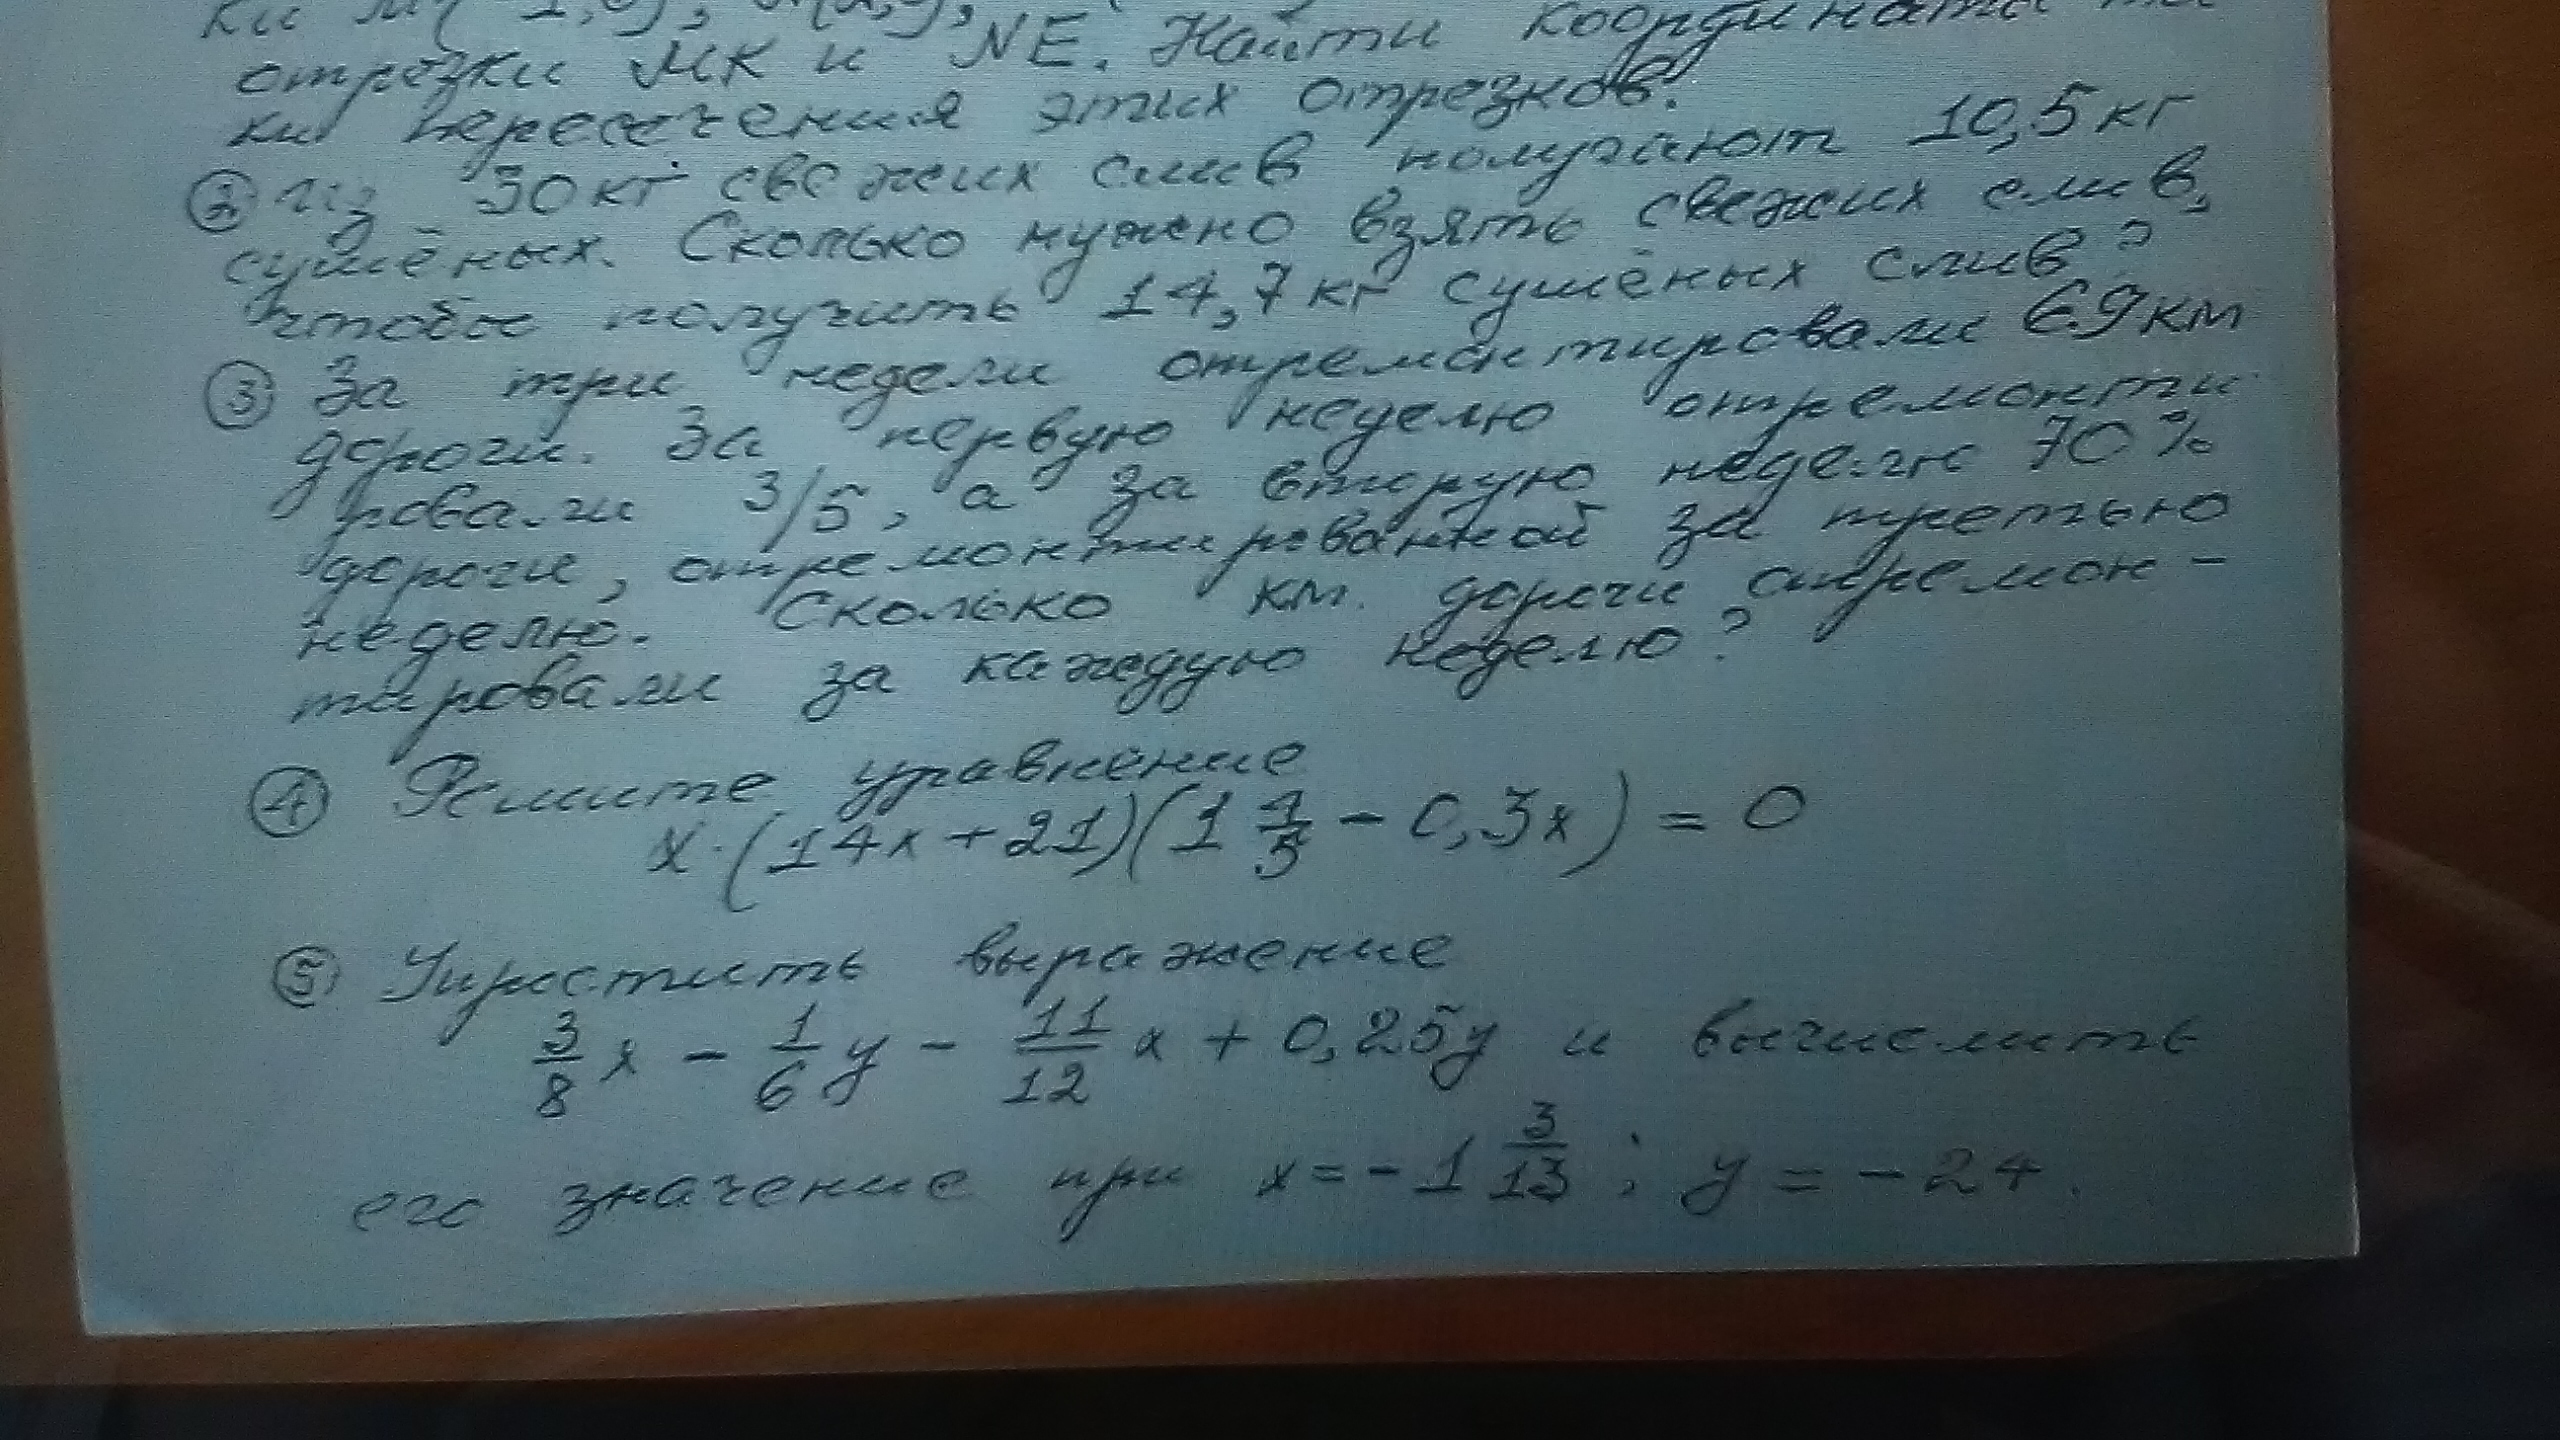 отрезки МК и NE. Найти координаты
ки пересечения этих отрезков.
② Из 30 кг свежих слив получают 10,5 кг
сушёных. Сколько нужно взять свежих слив,
чтобы получить 14,7 кг сушёных слив?
③ За три недели отремонтировали 6,9 км
дороги. За первую неделю отремонти
ровали 3/5, а за вторую неделю 70%
дороги, отремонтированной за третью
неделю. Сколько км. дороги отремон-
тировали за каждую неделю?
④ Решите уравнение
x·(14x+21)(1 1/5 - 0,3x) = 0
⑤ Упростить выражение
3/8 x - 1/6 y - 11/12 x + 0,25y и вычислить
его значение при x = -1 3/13; y = -24.